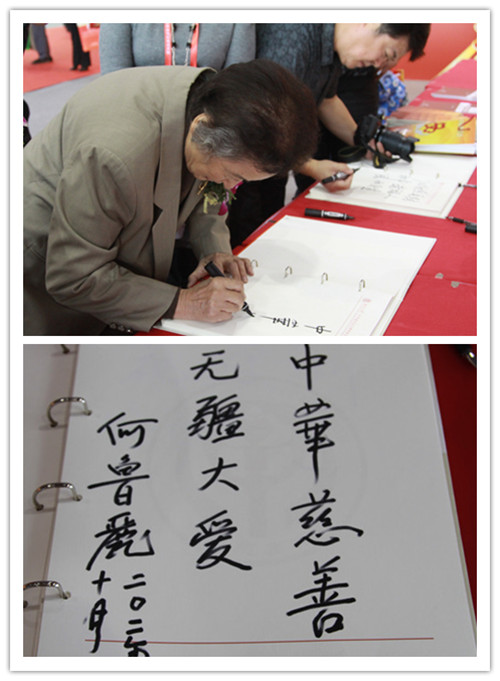 中華慈善
无疆大愛
何鲁麗
二〇一二年
十月